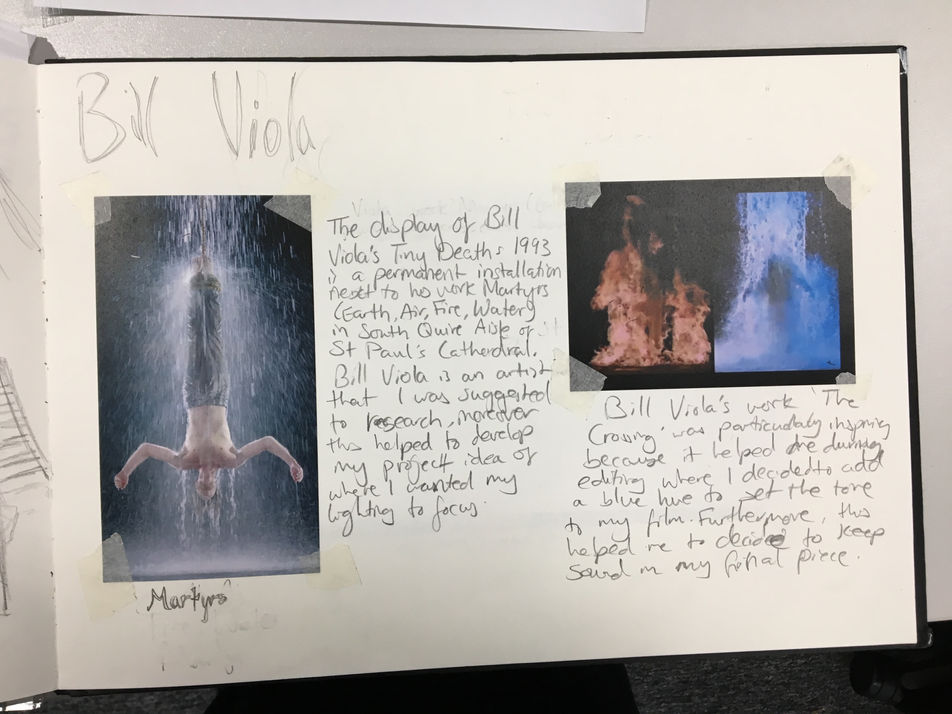 Bill Viola
The display of Bill
Viola's Tiny Deaths 1993
is a permanent installation
next to his work Martyrs
(Earth, Air, Fire, Water)
in South Quire Aisle of
St Paul's Catherdral.
Bill Viola is an artist
that I was suggested
to research, moreover
this helped to develop
my project idea of
where I wanted my
lighting to focus.
Martyrs
Bill Viola's work 'The
Crossing' was particularly inspiring
because it helped me during
editing where I decided to add
a blue hue to set the tone
to my film. Furthermore, this
helped me to decide to keep
sound in my final piece.